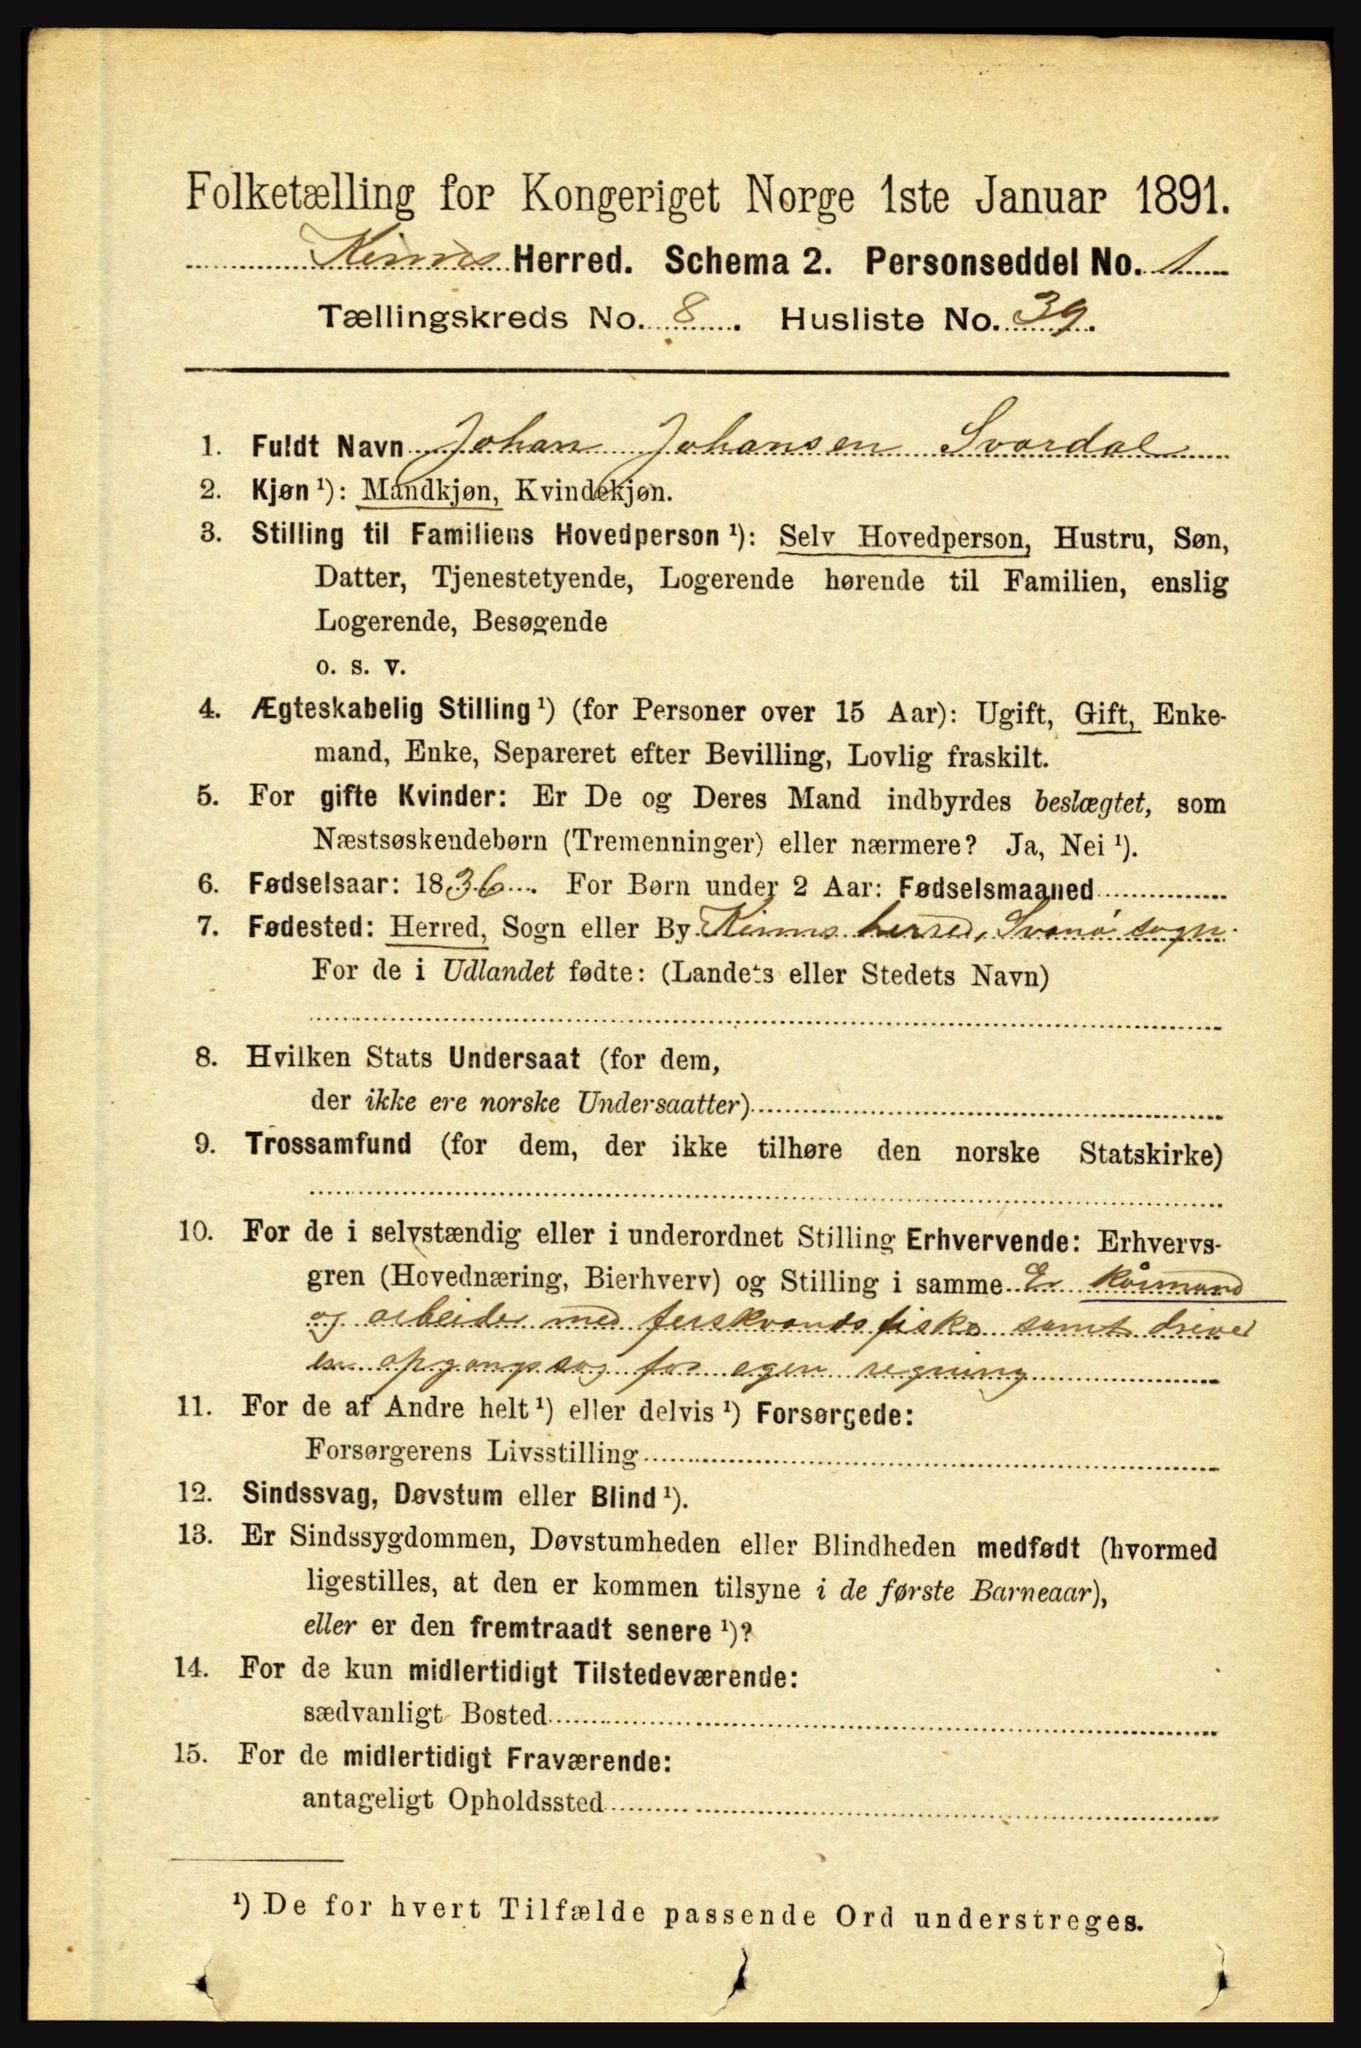 Folketælling for Kongeriget Norge 1ste Januar 1891.
Kinns Herred. Schema 2. Personseddel No. 1
Tællingskreds No. 8. Husliste No. 39.
1. Fuldt Navn Johan Johansen Svardal
2. Kjøn ¹): Mandkjøn, Kvindekjøn.
3. Stilling til Familiens Hovedperson ¹): Selv Hovedperson, Hustru, Søn,
Datter, Tjenestetyende, Logerende hørende til Familien, enslig
Logerende, Besøgende
o. s. v.
4. Ægteskabelig Stilling ¹) (for Personer over 15 Aar): Ugift, Gift, Enke-
mand, Enke, Separeret efter Bevilling, Lovlig fraskilt.
5. For gifte Kvinder: Er De og Deres Mand indbyrdes beslægtet, som
Næstsøskendebørn (Tremenninger) eller nærmere? Ja, Nei ¹).
6. Fødselsaar: 1836. For Børn under 2 Aar: Fødselsmaaned
7. Fødested: Herred, Sogn eller By Kinns herred, Svanø sogn.
For de i Udlandet fødte: (Landets eller Stedets Navn)
8. Hvilken Stats Undersaat (for dem,
der ikke ere norske Undersaatter)
9. Trossamfund (for dem, der ikke tilhøre den norske Statskirke)
10. For de i selvstændig eller i underordnet Stilling Erhvervende: Erhvervs-
gren (Hovednæring, Bierhverv) og Stilling i samme Er kårmand
og arbeider med ferskvandsfiske samt driver
en opgangssag for egen regning
11. For de af Andre helt ¹) eller delvis ¹) Forsørgede:
Forsørgerens Livsstilling
12. Sindssvag, Døvstum eller Blind ¹).
13. Er Sindssygdommen, Døvstumheden eller Blindheden medfødt (hvormed
ligestilles, at den er kommen tilsyne i de første Barneaar),
eller er den fremtraadt senere ¹)?
14. For de kun midlertidigt Tilstedeværende:
sædvanligt Bosted
15. For de midlertidigt Fraværende:
antageligt Opholdssted
¹) De for hvert Tilfælde passende Ord understreges.